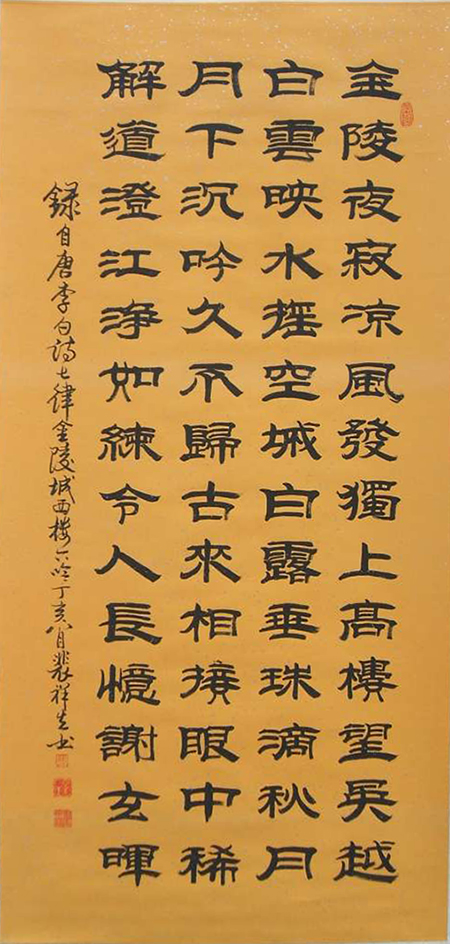 金陵夜寂凉風發獨上高樓望吳越
白雲映水摇空城白露垂珠滴秋月
月下沉吟久不歸古來相接眼中稀
解道澄江浄如練令人長憶謝玄暉
録自唐李白詩七律金陵城西楼下吟丁亥八月裴祥书